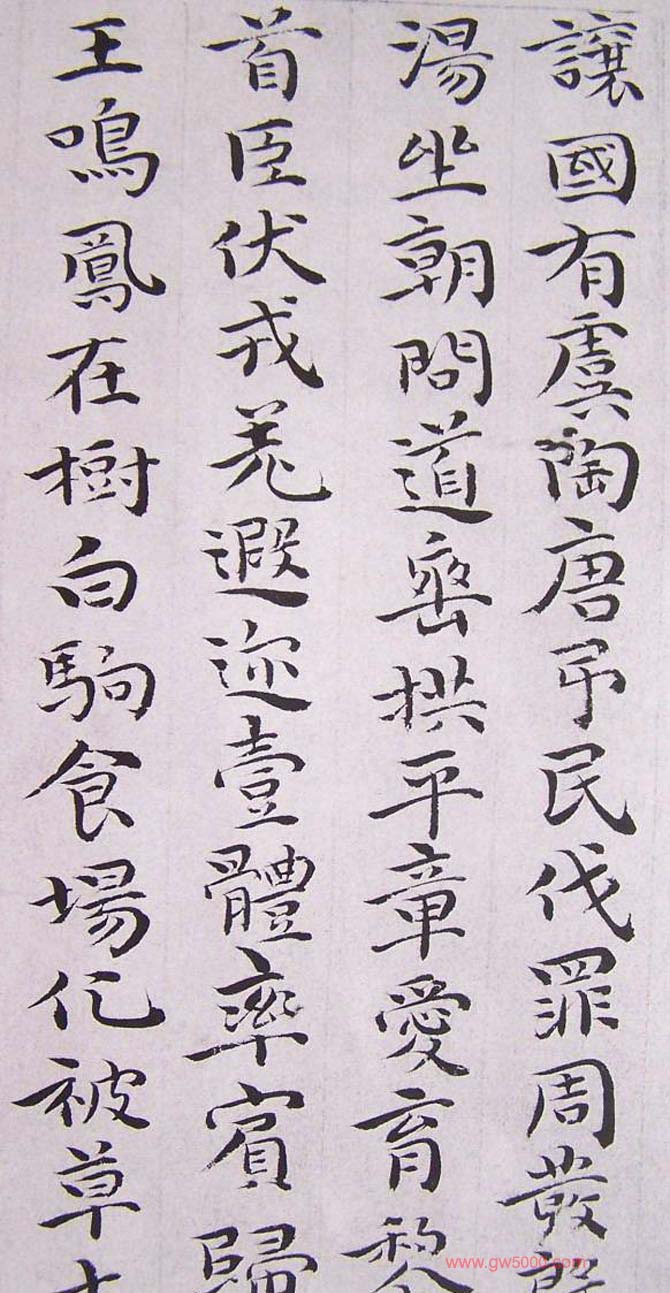 讓國有虞陶唐弔民伐罪周發殷
湯坐朝問道垂拱平章愛育黎
首臣伏戎羌遐迩壹體率賓歸
王鳴鳳在樹白駒食場化被草木
www.gw5000.com